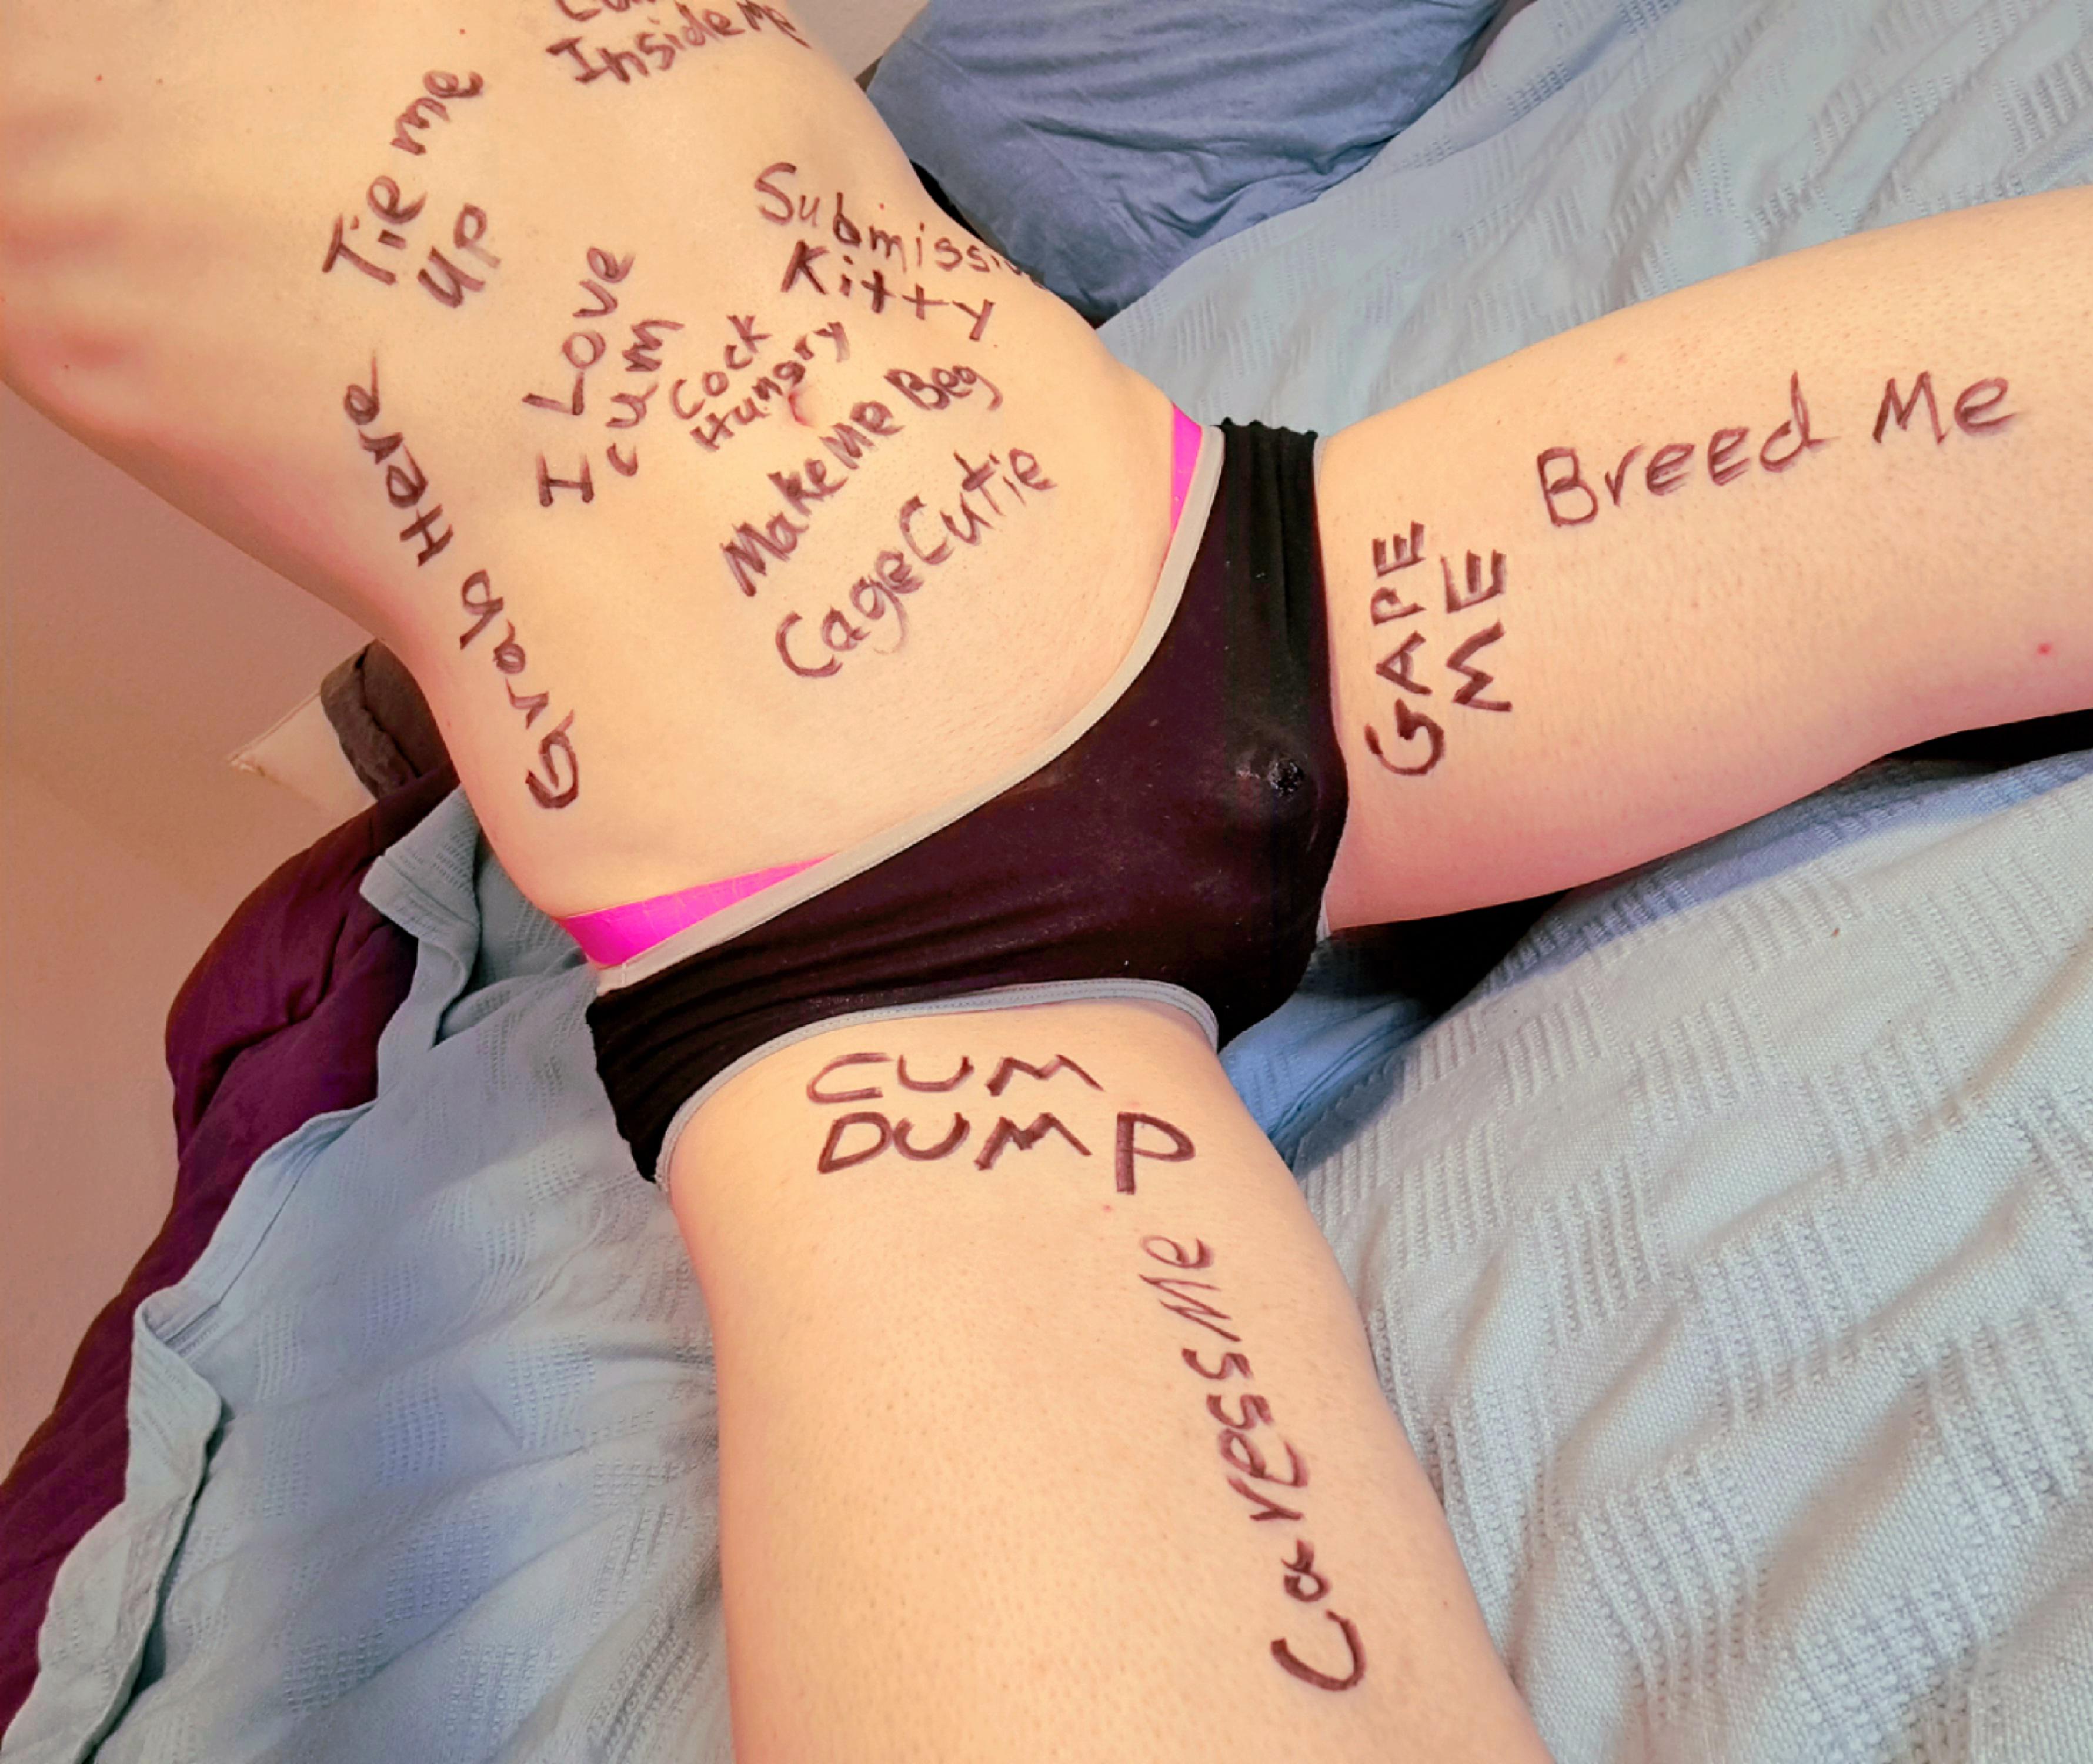 Inside Me
Tie me
UP
Kitty
I Love
cum
Cock
Hungry
Make Me Beg
Cage Cutie
Grab Here
Breed Me
GAPE
ME
CUM
DUMP
Caress Me